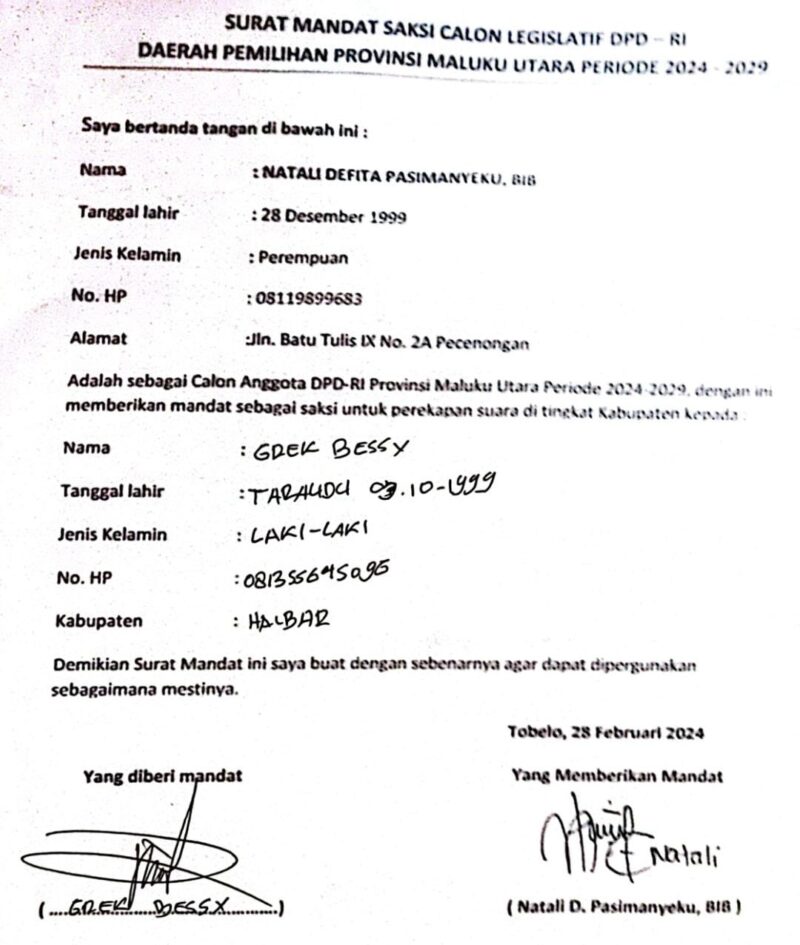 SURAT MANDAT SAKSI CALON LEGISLATIF DPD – RI
DAERAH PEMILIHAN PROVINSI MALUKU UTARA PERIODE 2024 - 2029
Saya bertanda tangan di bawah ini :
Nama : NATALI DEFITA PASIMANYEKU, BIB
Tanggal lahir : 28 Desember 1999
Jenis Kelamin : Perempuan
No. HP : 08119899683
Alamat :Jln. Batu Tulis IX No. 2A Pecenongan
Adalah sebagai Calon Anggota DPD-RI Provinsi Maluku Utara Periode 2024-2029, dengan ini
memberikan mandat sebagai saksi untuk perekapan suara di tingkat Kabupaten kepada :
Nama : GREK BESSY
Tanggal lahir : 03.10-1999
Jenis Kelamin : LAKI-LAKI
No. HP : 081355645095
Kabupaten : HALBAR
Demikian Surat Mandat ini saya buat dengan sebenarnya agar dapat dipergunakan
sebagaimana mestinya.
Tobelo, 28 Februari 2024
Yang diberi mandat Yang Memberikan Mandat
Natali
(....GREK BESSX............) ( Natali D. Pasimanyeku, BIB )